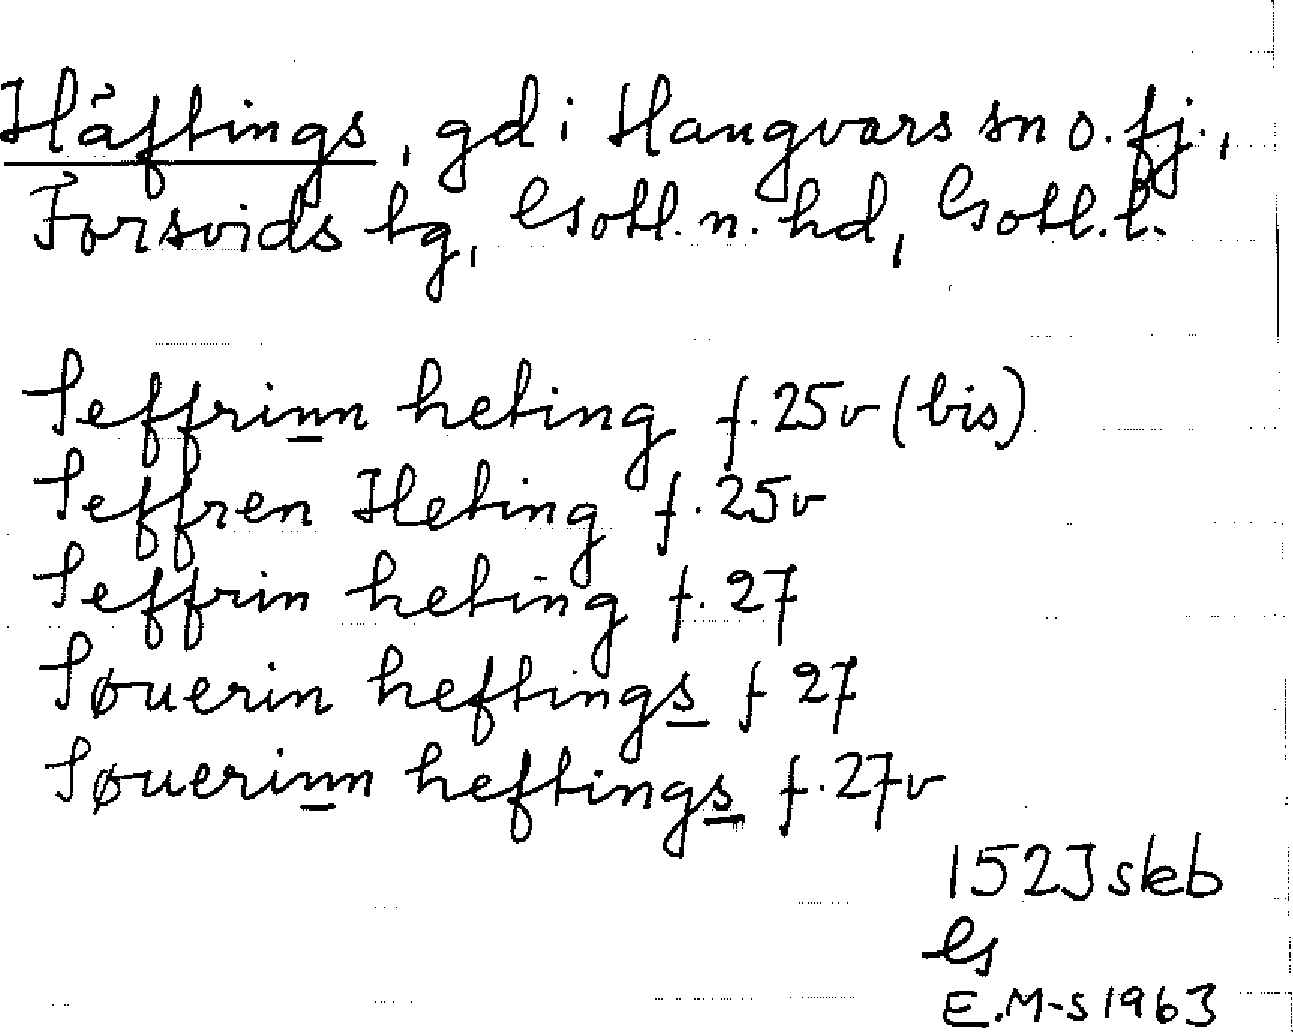 Häftings, gd i Hangvars sn o. fj.,
Forsvids tg, Gotl. n. hd, Gotl. l.
Seffrinn heting f. 25v (bis)
Seffren Heting f. 25v
Seffrin heting f. 27
Søuerin heftings f 27
Søuerinn heftings f. 27v
1523 skb
G
E.M-s 1963